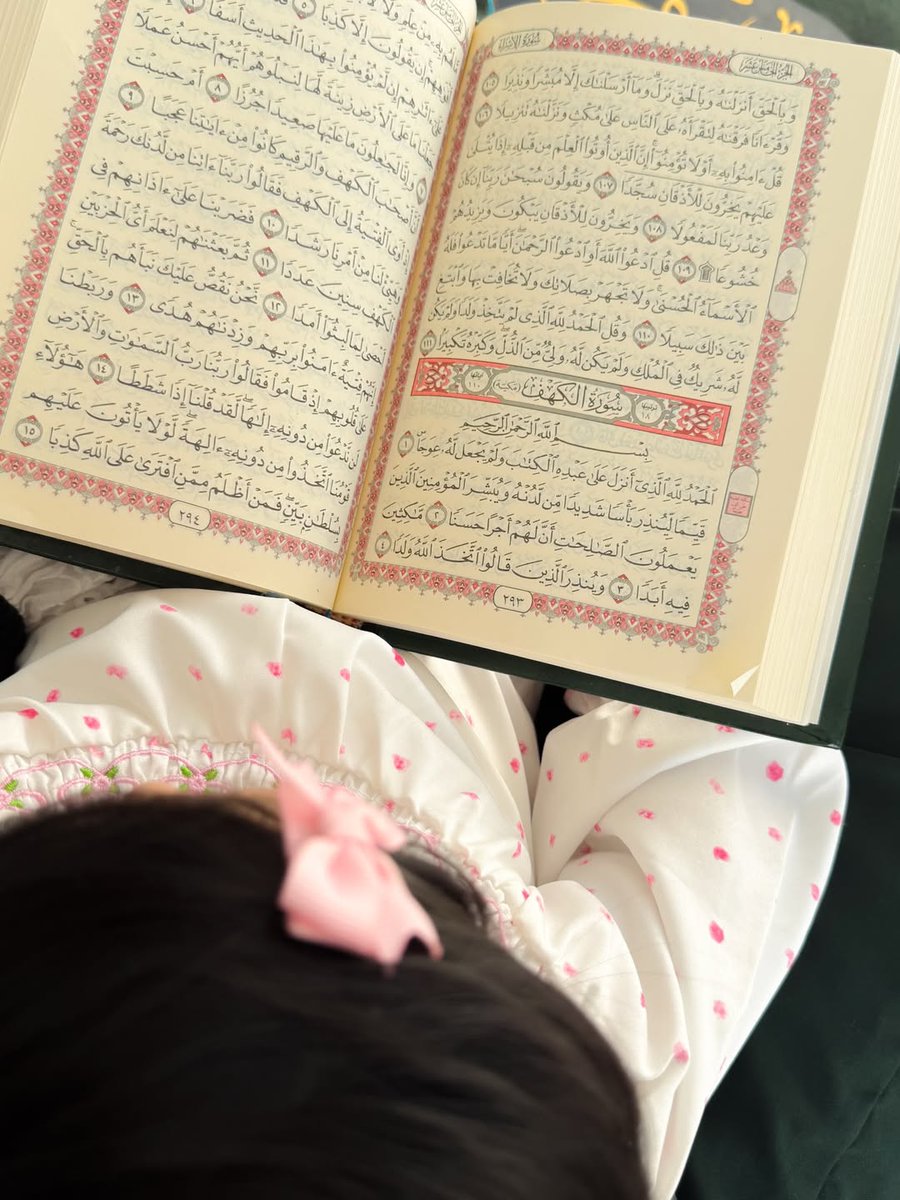 الجزء الخامس عشر
سُورَةُ الإِسْرَاءِ
وَبِٱلْحَقِّ أَنزَلْنَٰهُ وَبِٱلْحَقِّ نَزَلَ وَمَآ أَرْسَلْنَٰكَ إِلَّا مُبَشِّرًا وَنَذِيرًا ١٠٥
وَقُرْءَانًا فَرَقْنَٰهُ لِتَقْرَأَهُۥ عَلَى ٱلنَّاسِ عَلَىٰ مُكْثٍ وَنَزَّلْنَٰهُ تَنزِيلًا ١٠٦
قُلْ ءَامِنُوا۟ بِهِۦٓ أَوْ لَا تُؤْمِنُوٓا۟ إِنَّ ٱلَّذِينَ أُوتُوا۟ ٱلْعِلْمَ مِن قَبْلِهِۦٓ إِذَا يُتْلَىٰ
عَلَيْهِمْ يَخِرُّونَ لِلْأَذْقَانِ سُجَّدًا ١٠٧ وَيَقُولُونَ سُبْحَٰنَ رَبِّنَآ إِن كَانَ
وَعْدُ رَبِّنَا لَمَفْعُولًا ١٠٨ وَيَخِرُّونَ لِلْأَذْقَانِ يَبْكُونَ وَيَزِيدُهُمْ
خُشُوعًا ۩ ١٠٩ قُلِ ٱدْعُوا۟ ٱللَّهَ أَوِ ٱدْعُوا۟ ٱلرَّحْمَٰنَ أَيًّا مَّا تَدْعُوا۟ فَلَهُ
ٱلْأَسْمَآءُ ٱلْحُسْنَىٰ وَلَا تَجْهَرْ بِصَلَاتِكَ وَلَا تُخَافِتْ بِهَا وَٱبْتَغِ
بَيْنَ ذَٰلِكَ سَبِيلًا ١١٠ وَقُلِ ٱلْحَمْدُ لِلَّهِ ٱلَّذِى لَمْ يَتَّخِذْ وَلَدًا وَلَمْ يَكُن
لَّهُۥ شَرِيكٌ فِى ٱلْمُلْكِ وَلَمْ يَكُن لَّهُۥ وَلِىٌّ مِّنَ ٱلذُّلِّ وَكَبِّرْهُ تَكْبِيرًۢا ١١١
ترتيبها ١٨ سُورَةُ الكَهْفِ مكية آياتها ١١٠
بِسْمِ ٱللَّهِ ٱلرَّحْمَٰنِ ٱلرَّحِيمِ
ٱلْحَمْدُ لِلَّهِ ٱلَّذِىٓ أَنزَلَ عَلَىٰ عَبْدِهِ ٱلْكِتَٰبَ وَلَمْ يَجْعَل لَّهُۥ عِوَجَا ١
قَيِّمًا لِّيُنذِرَ بَأْسًا شَدِيدًا مِّن لَّدُنْهُ وَيُبَشِّرَ ٱلْمُؤْمِنِينَ ٱلَّذِينَ
يَعْمَلُونَ ٱلصَّٰلِحَٰتِ أَنَّ لَهُمْ أَجْرًا حَسَنًا ٢ مَّٰكِثِينَ
فِيهِ أَبَدًا ٣ وَيُنذِرَ ٱلَّذِينَ قَالُوا۟ ٱتَّخَذَ ٱللَّهُ وَلَدًا ٤
٢٩٣
بِهِۦ مِنْ عِلْمٍ وَلَا
إِن يَقُولُونَ إِلَّا كَذِبًا ٥
إِن لَّمْ يُؤْمِنُوا۟ بِهَٰذَا ٱلْحَدِيثِ أَسَفًا
مَا عَلَى ٱلْأَرْضِ زِينَةً لَّهَا لِنَبْلُوَهُمْ أَيُّهُمْ أَحْسَنُ عَمَلًا
وَإِنَّا لَجَٰعِلُونَ مَا عَلَيْهَا صَعِيدًا جُرُزًا ٨ أَمْ حَسِبْتَ
أَنَّ أَصْحَٰبَ ٱلْكَهْفِ وَٱلرَّقِيمِ كَانُوا۟ مِنْ ءَايَٰتِنَا عَجَبًا ٩
إِذْ أَوَى ٱلْفِتْيَةُ إِلَى ٱلْكَهْفِ فَقَالُوا۟ رَبَّنَآ ءَاتِنَا مِن لَّدُنكَ رَحْمَةً
وَهَيِّئْ لَنَا مِنْ أَمْرِنَا رَشَدًا ١٠ فَضَرَبْنَا عَلَىٰٓ ءَاذَانِهِمْ فِى
ٱلْكَهْفِ سِنِينَ عَدَدًا ١١ ثُمَّ بَعَثْنَٰهُمْ لِنَعْلَمَ أَىُّ ٱلْحِزْبَيْنِ
أَحْصَىٰ لِمَا لَبِثُوٓا۟ أَمَدًا ١٢ نَّحْنُ نَقُصُّ عَلَيْكَ نَبَأَهُم بِٱلْحَقِّ
إِنَّهُمْ فِتْيَةٌ ءَامَنُوا۟ بِرَبِّهِمْ وَزِدْنَٰهُمْ هُدًى ١٣ وَرَبَطْنَا
عَلَىٰ قُلُوبِهِمْ إِذْ قَامُوا۟ فَقَالُوا۟ رَبُّنَا رَبُّ ٱلسَّمَٰوَٰتِ وَٱلْأَرْضِ
لَن نَّدْعُوَا۟ مِن دُونِهِۦٓ إِلَٰهًا لَّقَدْ قُلْنَآ إِذًا شَطَطًا ١٤ هَٰٓؤُلَآءِ
قَوْمُنَا ٱتَّخَذُوا۟ مِن دُونِهِۦٓ ءَالِهَةً لَّوْلَا يَأْتُونَ عَلَيْهِم
بِسُلْطَٰنٍۭ بَيِّنٍ فَمَنْ أَظْلَمُ مِمَّنِ ٱفْتَرَىٰ عَلَى ٱللَّهِ كَذِبًا ١٥
٢٩٤